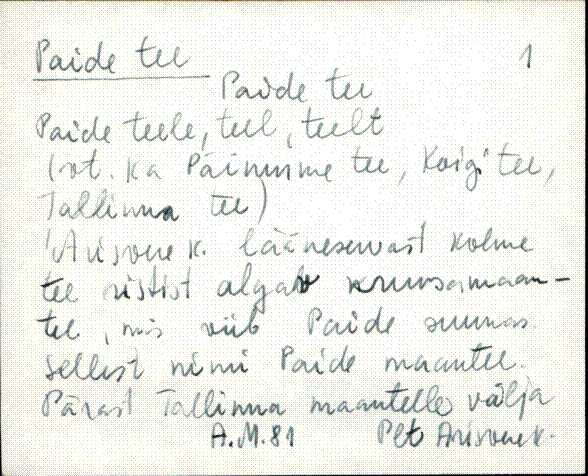 Paide tee 1
Paide tee
Paide teele, teel, teelt
(vt. ka Päinurme tee, Koigi tee,
Tallinna tee)
'Arisvere k. lääneservast kolme
tee ristist algab kruusamaan-
tee, mis viib Paide suunas.
Sellest nimi Paide maantee.
Pärast Tallinna maanteelle välja
A.M.81 Plt Arisvere k.